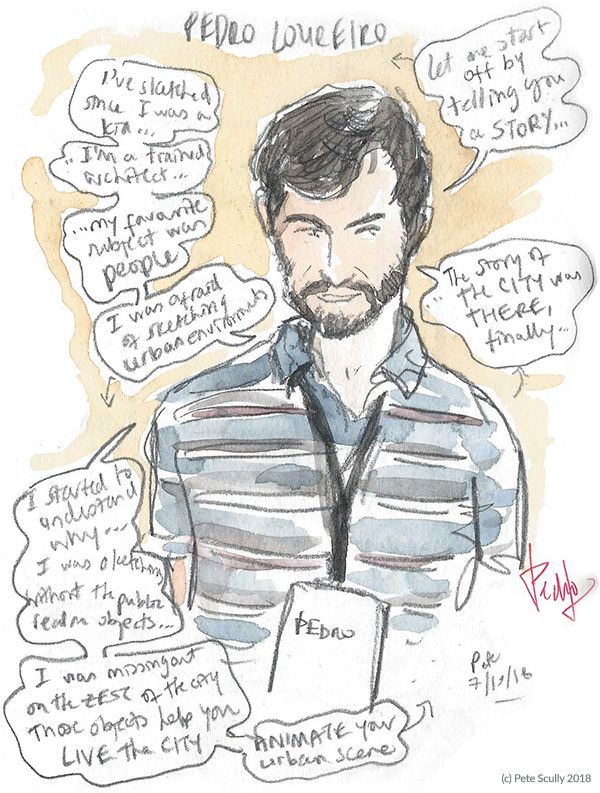 PEDRO LOUREIRO
Let me start
off by
telling you
a STORY...
I've sketched
since I was a
kid...
.. I'm a trained
architect...
...my favourite
subject was
people
I was afraid
of sketching
urban environments
I started to
understand
why...
I was sketching
without the public
realm objects...
I was missing out
on the ZEST of the city
Those objects help you
LIVE the CITY
ANIMATE your
urban scene
The story of
the CITY was
THERE,
finally...
PEDRO
Pedro
Pete
7/10/18
(c) Pete Scully 2018